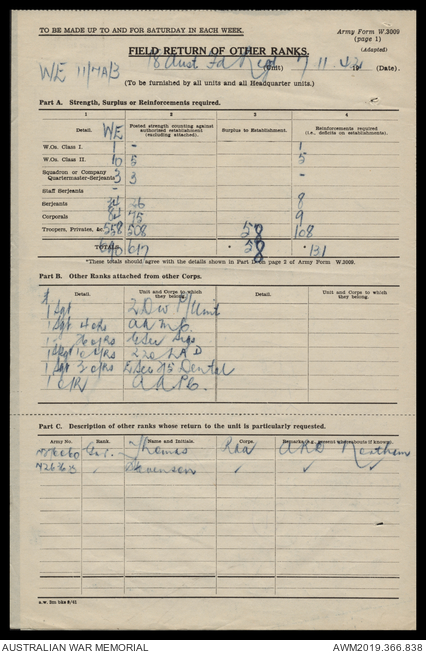 TO BE MADE UP TO AND FOR SATURDAY IN EACH WEEK.
Army Form W.3009
(page 1)
(Adapted)
FIELD RETURN OF OTHER RANKS.
WE 11/7A/3
18 Aust Fd Regt (Unit) 7.11.42 (Date).
(To be furnished by all units and all Headquarter units.)
Part A. Strength, Surplus or Reinforcements required.
1 2 3 4
Detail. WE
Posted strength counting against authorised establishment (excluding attached).
Surplus to Establishment.
Reinforcements required (i.e., deficits on establishments).
W.Os. Class I. 1 - 1
W.Os. Class II. 10 5 5
Squadron or Company
Quartermaster-Serjeants 3 3 -
Staff Serjeants -
Serjeants 34 26 8
Corporals 84 75 9
Troopers, Privates, &c. 558 508 58 108
TOTAL 690 617 * 58 * 131
*These totals should agree with the details shown in Part D on page 2 of Army Form W.3009.
Part B. Other Ranks attached from other Corps.
Detail.
Unit and Corps to which they belong.
Detail.
Unit and Corps to which they belong.
1 Sgt 2 Div P/Unit
1 Sgt 4 ORs AAMC.
Sec Sigs
LAD
1 Sgt 3 O/Rs Dental
1 O/R AAPC.
Part C. Description of other ranks whose return to the unit is particularly requested.
Army No. Rank. Name and Initials. Corps. Remarks (e.g., present whereabouts if known).
Gnr. Thomas RAA
Stevenson ✓ ✓ ✓
AUSTRALIAN WAR MEMORIAL
AWM2019.366.838